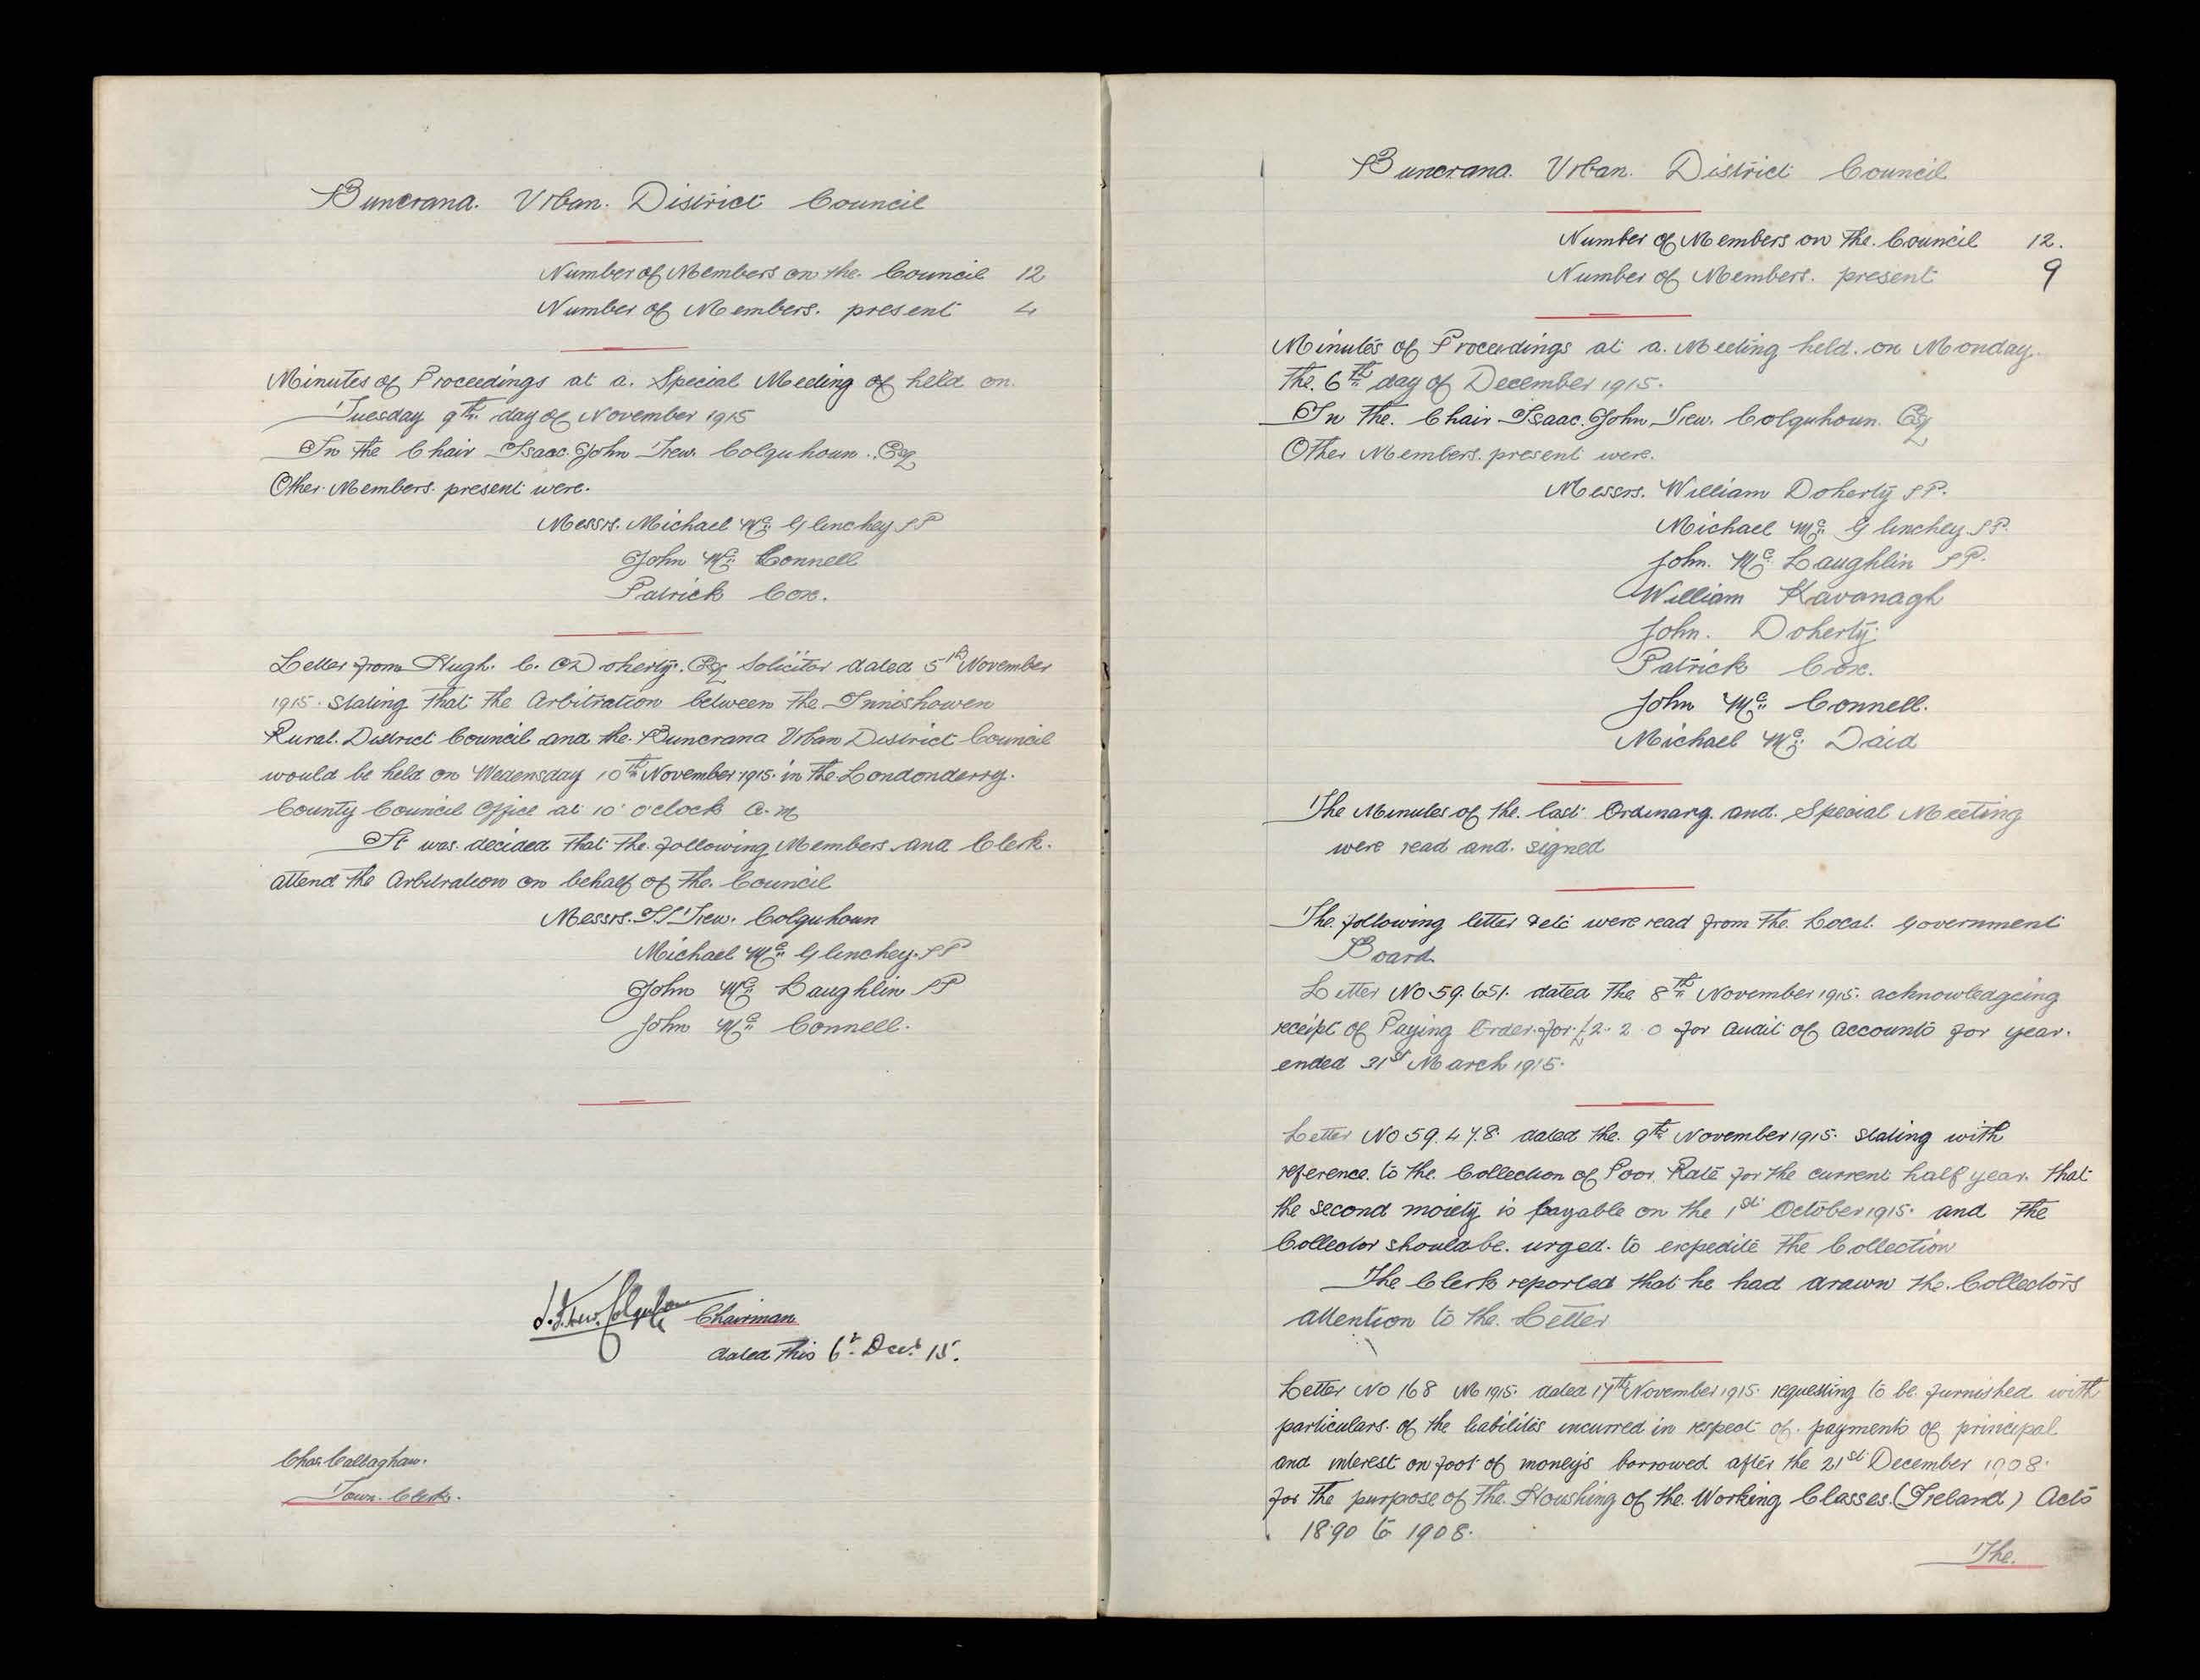 Buncrana. Urban. District Council
Number of Members on the Council 12
Number of Members. present 4
Minutes of Proceedings at a. Special Meeting of held on.
Tuesday 9th day of November 1915
In the Chair Isaac. John Trew. Colquhoun. Esq
Other Members. present were.
Messrs. Michael Mc Glinchey JP
John Mc Connell
Patrick Cox.
Letter from Hugh. C. O'Doherty. Esq Solicitor dated 5th November
1915. stating that the Arbitration between the Innishowen
Rural. District Council and the. Buncrana Urban District Council
would be held on Wedensday 10th November 1915. in the Londonderry.
County Council Office at 10 o'clock a.m
It was. decided that the following Members and Clerk.
attend the Arbitration on behalf of the. Council
Messrs. I J Trew. Colquhoun
Michael Mc Glinchey. JP
John Mc Laughlin JP
John Mc Connell.
I. J. Trew. Colquhoun Chairman
dated this 6th Decr 15.
Chas. Callaghan.
Town. Clerk.
Buncrana. Urban. District Council
Number of Members on the. Council 12.
Number of Members. present 9
Minutes of Proceedings at a. Meeting held. on Monday.
the. 6th day of December 1915.
In the. Chair Isaac. John Trew. Colquhoun. Esq
Other Members. present were.
Messrs. William Doherty JP.
Michael Mc Glinchey JP.
John. Mc Laughlin JP.
William Kavanagh
John. Doherty.
Patrick Cox.
John Mc Connell.
Michael Mc Daid
The Minutes of the. last Ordinary. and. Special Meeting
were read and. signed
The following letter &etc were read from the. Local. Government
Board.
Letter No 59.651. dated the 8th November 1915. acknowledgeing
receipt of Paying Order for £2. 2. 0 for audit of accounts for year.
ended 31st March 1915.
Letter No 59.478. dated the. 9th November 1915. stating with
reference. to the. Collection of Poor. Rate for the current half year. that
the second moiety is payable on the 1st October 1915. and the
Collector should be. urged. to expedite the Collection
The Clerk reported that he had drawn the. Collectors
attention to the. Letter
Letter No 168 M 1915. dated 17th November 1915. requesting to be. furnished with
particulars. of the liabilites incurred in respect of. payments of principal
and interest on foot of money's borrowed after the 21st December 1908.
for the purpose of the. Houshing of the. Working Classes. (Ireland) Acts
1890 to 1908.
The.